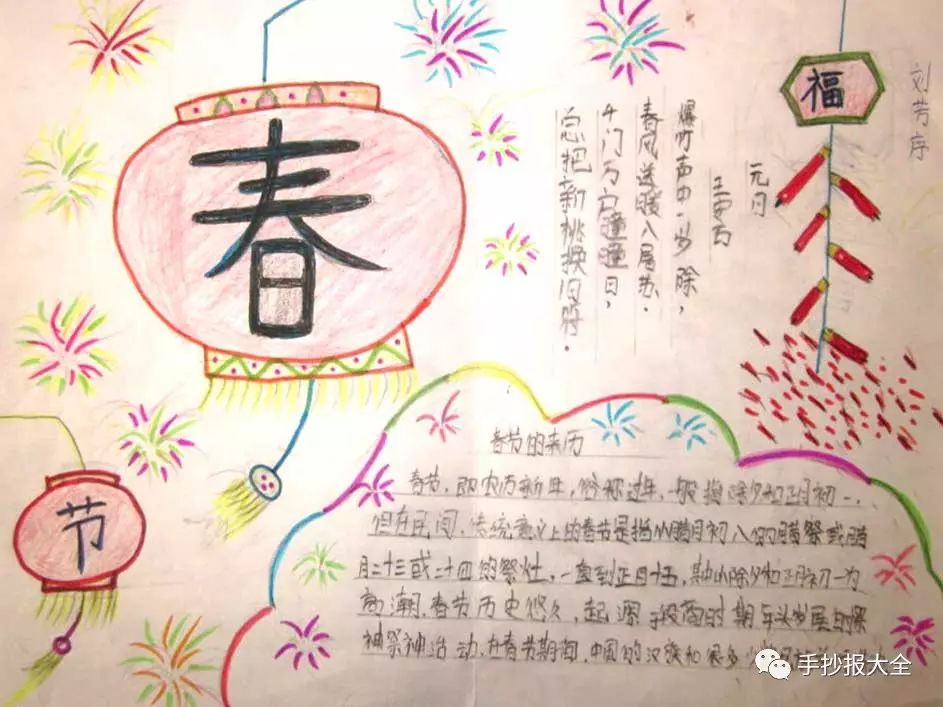 春
节
福
刘芳序
元日
王安石
爆竹声中一岁除，
春风送暖入屠苏.
千门万户瞳瞳日，
总把新桃换旧符.
春节的来历
春节，即农历新年，俗称过年，一般指除夕和正月初一.
但在民间，传统意义上的春节是指从腊月初八的腊祭或腊
月二十三或二十四的祭灶，一直到正月十五，其中以除夕和正月初一为
高潮.春节历史悠久，起源于殷商时期年头岁尾的祭
神祭神活动.在春节期间，中国的汉族和很多
手抄报大全